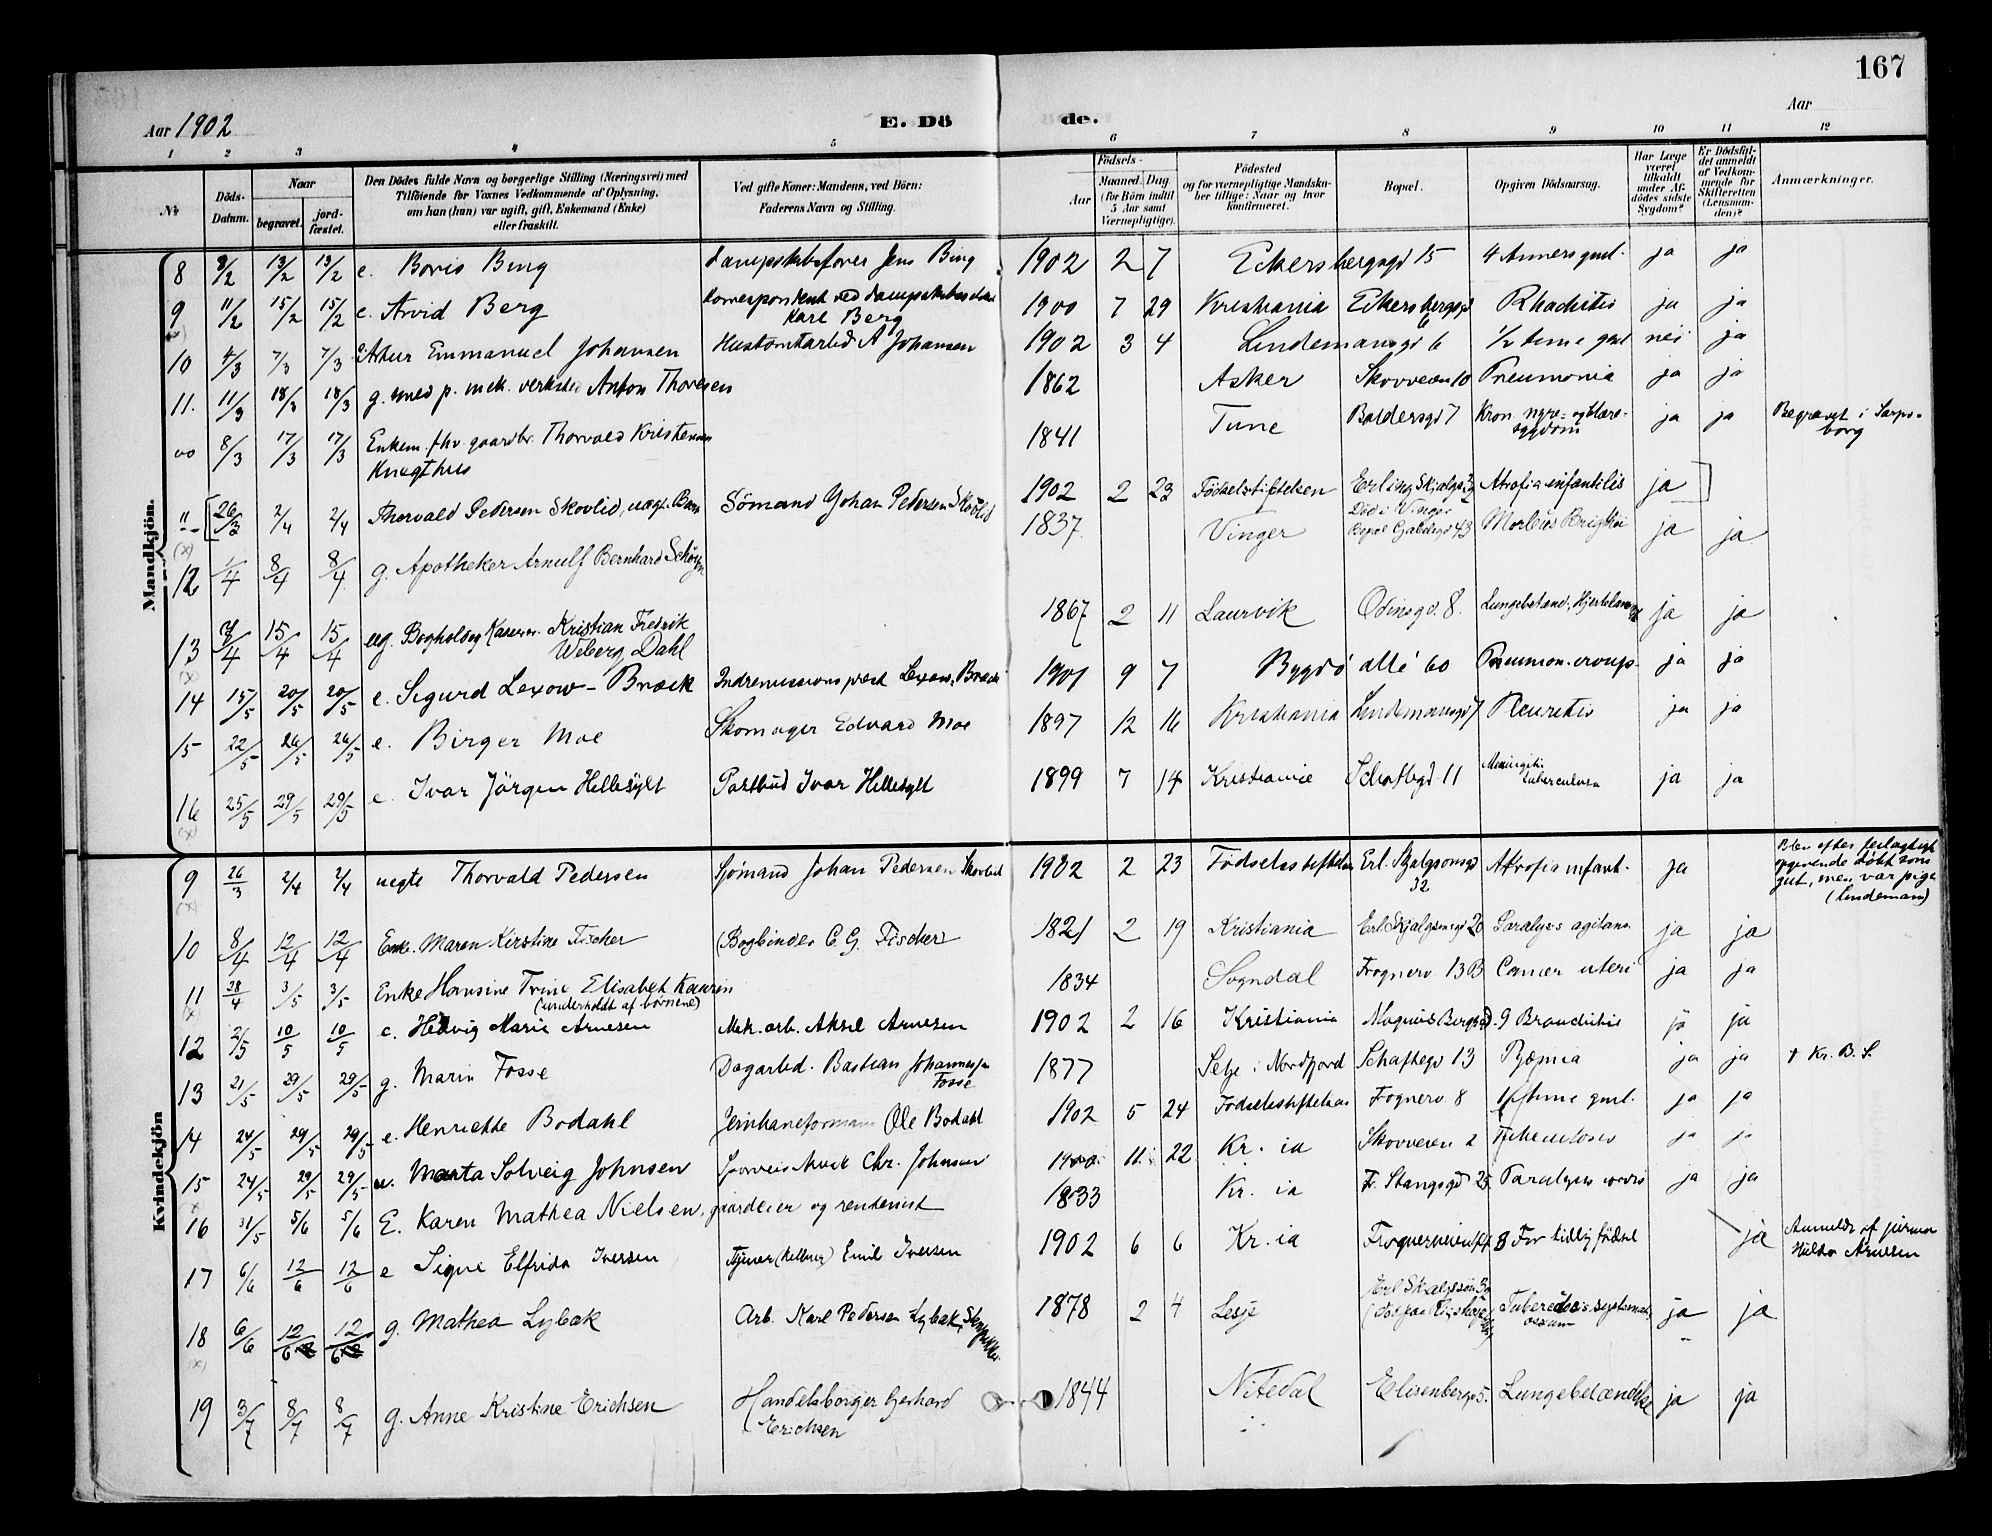 167
Aar 1902 E. Dö de. Aar
1 2 3 4 5 6 7 8 9 10 11 12
№ Döds-Datum. Naar begravet. jord-fæstet. Den Dödes fulde Navn og borgerlige Stilling (Næringsvei) med Tilföiende for Voxnes Vedkommende af Oplysning, om han (hun) var ugift, gift, Enkemand (Enke) eller fraskilt. Ved gifte Koner: Mandens, ved Börn: Faderens Navn og Stilling. Födsels- Aar Maaned. Dag (for Börn indtil 5 Aar samt Værnepligtige). Födested og for værnepligtige Mandskaber tillige: Naar og hvor konfirmeret. Bopæl. Opgiven Dödsaarsag. Har Læge været tilkaldt under Afdödes sidste Sygdom? Er Dödsfaldet anmeldt af Vedkommende for Skifteretten (Lensmanden)? Anmærkninger.
Mandkjön.
8 9/2 13/2 13/2 e. Boris Bing Dampskibsfører Jens Bing 1902 2 7 Eckersbergsgd 15 4 Anners gml. ja ja
9 11/2 15/2 15/2 e. Arvid Berg Korrespondent ved dampskibsselsk. Karl Berg 1900 7 29 Kristiania Eckersbergsgd 6 Rhachitis ja ja
10 4/3 7/3 7/3 Emmanuel Johansen A Johansen 1902 3 4 Lindemansgd 6 1/2 time gml nei ja
11. 11/3 18/3 18/3 g. smed p. mek. verksted Anton Thoresen 1862 Asker Skovveien 10 Pneumonia ja ja
oo 8/3 17/3 17/3 Enkem. fhv. gaardbr. Thorvald Kristensen Knagthus 1841 Tune Baldersgd 7 Kron. nyre- og blære-sygdom ja ja Begravet i Sarpsborg
11 [26/3 2/4 2/4 Thorvald Pedersen Skovlid, uægt. Barn Sömand Johan Pedersen Skovlid 1902 2 23 Födselsstiftelsen Erling Skjalgs Atrofia infantilis ja ]
12 1/4 8/4 8/4 g. Apotheker Arnulf Bernhard Schøyen 1837 Vinger Död i Vinger Bopæl Gabelsgd 43 Morbus Brightii ja ja
13 9/4 15/4 15/4 ug. Bogholder Kristian Fredrik Weberg Dahl 1867 2 11 Laurvik Odinsgd. 8. Lungebetænd, ja ja
14 15/5 20/5 20/5 e. Sigurd Lexow-Bræck Indremissionsprest Lexow-Bræck 1901 9 7 Bygdö allé 60 Pneumon. croup. ja ja
15 22/5 26/5 26/5 e. Birger Moe Skomager Edvard Moe 1897 12 16 Kristiania Lindemansgd 7 Pleuritis ja ja
16 25/5 29/5 29/5 e. Ivar Jörgen Hellesylt Postbud Ivar Hellesylt 1899 7 14 Kristiania Schaftegd 11 Meningitis tuberculosa ja ja
Kvindekjön
9 26/3 2/4 2/4 uegte Thorvald Pedersen Sjömand Johan Pedersen Skovlid 1902 2 23 Födselsstiftelsen Erl. Skjalgsonsgd 32 Atrofia infant. ja Blev efter feilagtigt opgivende døbt som gut, men var pige (Lindeman)
10 8/4 12/4 12/4 Enke. Maren Kirstine Fischer (Bogbinder C. G. Fischer) 1821 2 19 Kristiania Erl. Skjalgsonsgd 20 Paralysis agitans ja ja
11 28/4 3/5 3/5 Enke Hansine Trine Elisabet Kaurin (underholdt af børnene) 1834 Sogndal Frognerv. 13B Cancer uteri ja ja
12 2/5 10/5 10/5 e. Hedvig Marie Arnesen Mek. arb. Aksel Arnesen 1902 2 16 Kristiania Magnus Bergsgd. 9 Bronchitis ja ja
13 21/5 29/5 29/5 g. Marin Fosse Dagarbd. Bastian Johannesen Fosse 1877 Selje i Nordfjord Schaftegd 13 Pyæmia ja ja † Kr. B. S.
14 24/5 29/5 29/5 e. Henriette Bodahl Jernbaneformann Ole Bodahl 1902 5 24 Födselsstiftelsen Frognerv. 8 time gml. ja ja
15 24/5 29/5 29/5 Marta Solveig Johnsen Chr. Johnsen 1900 11 22 Kr. ia Skovveien 2 Tuberkulosis ja ja
16 31/5 5/6 5/6 E. Karen Mathea Nielsen, gaardeier og rentenist 1833 Kr. ia Fr. Stangsgd 25. Paralysis cordis ja ja
17 6/6 12/6 12/6 e Signe Elfrida Iversen Tjener (kellner) Emil Iversen 1902 6 6 Kr. ia Frognerveien For tidlig födsel ja Anmeldt af jormor Hilda Arnesen
18 6/6 12/6 12/6 g. Mathea Lybæk Arb. Karl Pedersen Lybæk, 1878 2 4 Lesje Erl. Skjalgssöns ja ja
19 3/7 8/7 8/7 g. Anne Kristine Erichsen Handelsborger Gerhard Erichsen 1844 Nitedal Elisenbergv 5. Lungebetændelse ja ja